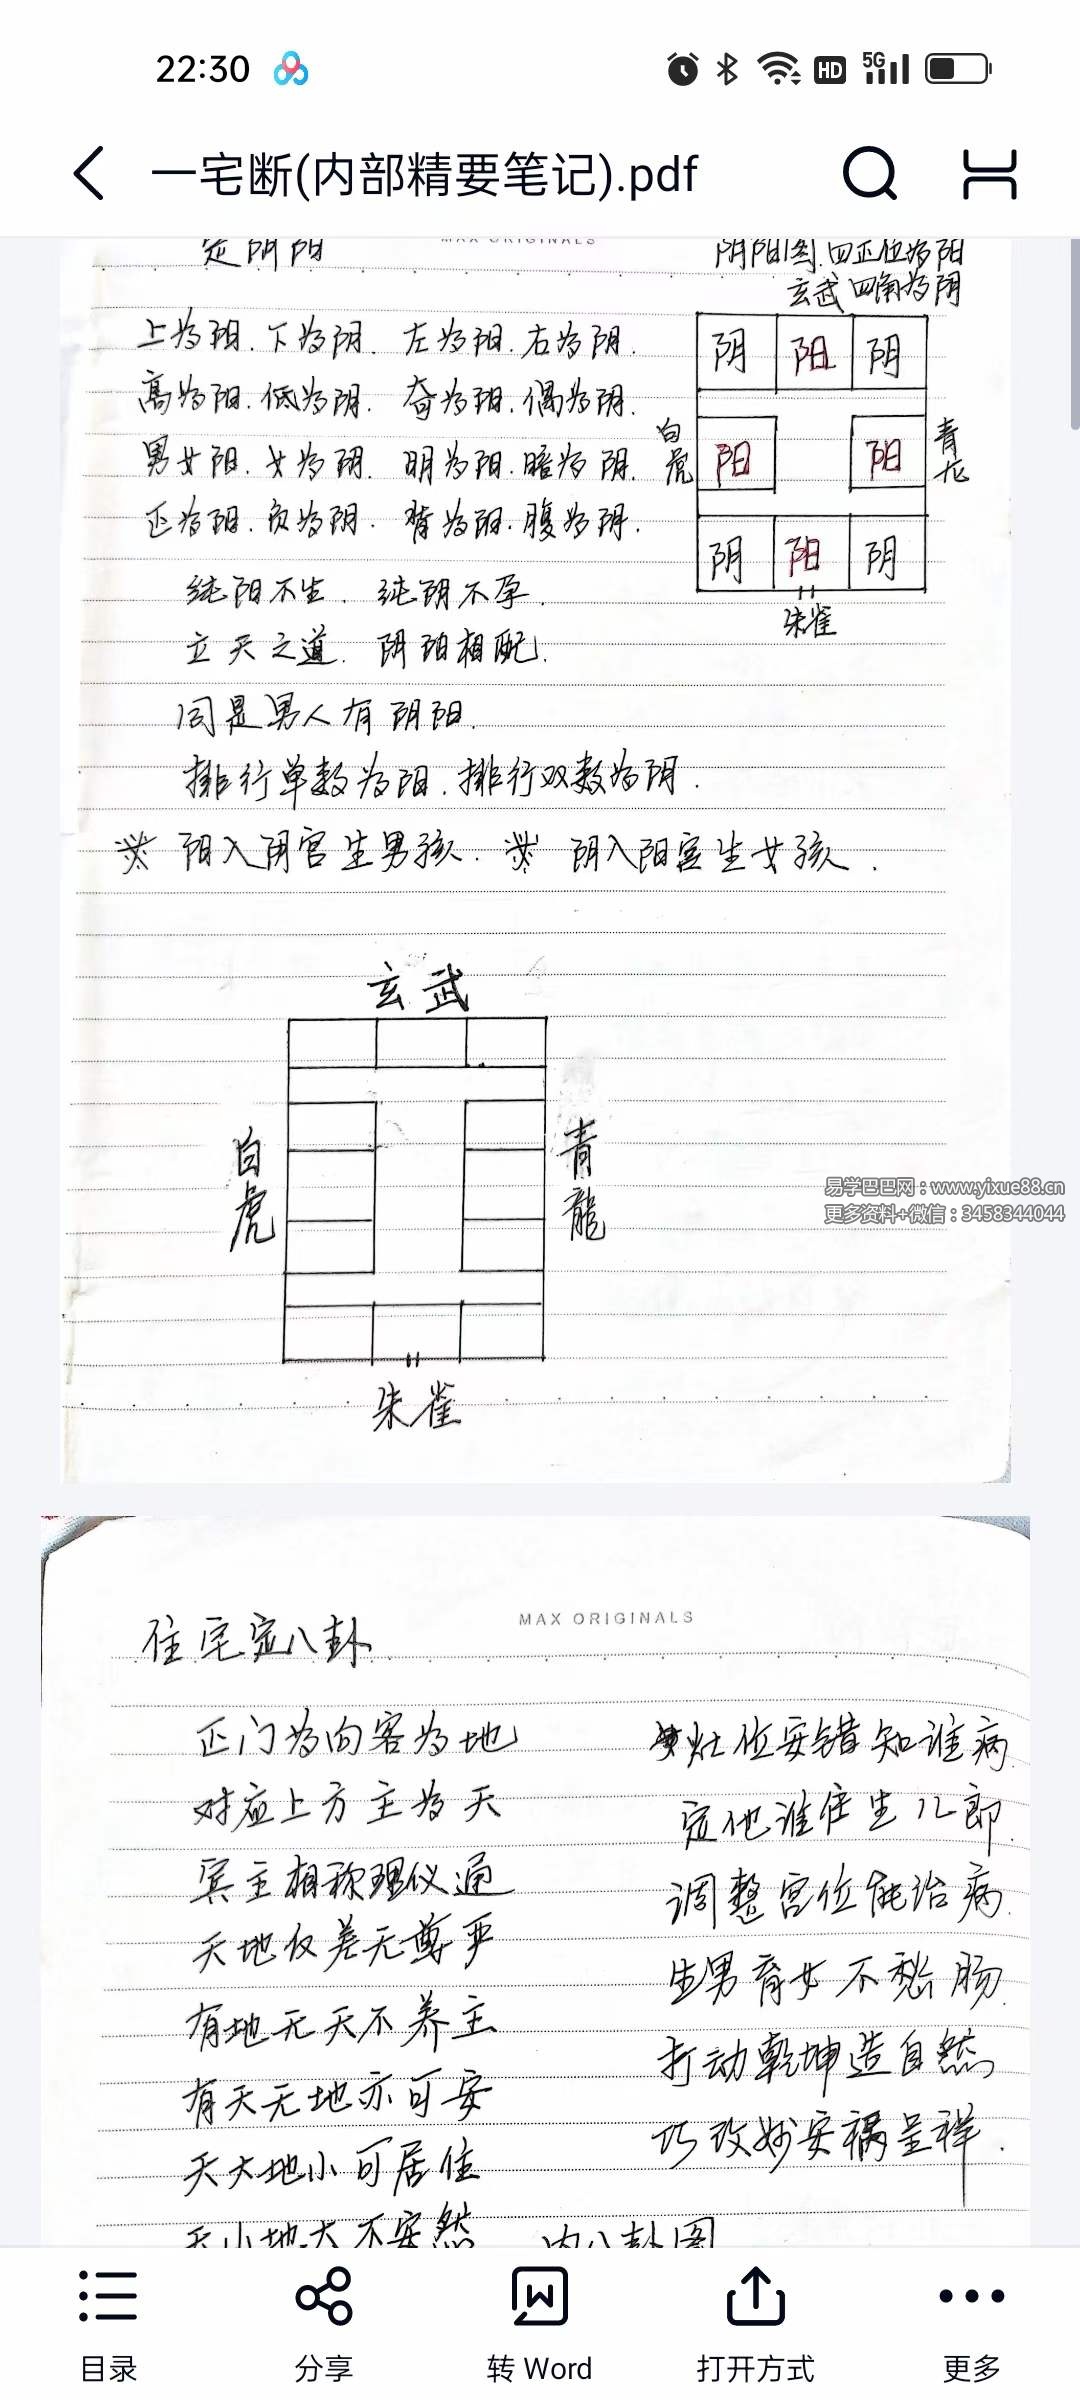 22:30
HD 5G
一宅断(内部精要笔记).pdf
定阴阳
MAX ORIGINALS
阴阳图.四正位为阳
玄武 四角为阴
上为阳.下为阴. 左为阳.右为阴.
高为阳.低为阴. 奇为阳.偶为阴.
男女阳.女为阴. 明为阳.暗为阴.
正为阳.负为阴. 背为阳.腹为阴.
阴 阳 阴
白虎 阳 阳 青龙
阴 阳 阴
朱雀
纯阳不生. 纯阴不孕.
立天之道. 阴阳相配.
同是男人有阴阳.
排行单数为阳.排行双数为阴.
阳入阴宫生男孩. 阴入阳宫生女孩.
玄武
白虎
青龍
朱雀
易学巴巴网：www.yixue88.cn
更多资料+微信：3458344044
MAX ORIGINALS
住宅定八卦
正门为向客为地
对应上方主为天
宾主相称理仪通
天地仪差无尊严
有地无天不养主
有天无地亦可安
天大地小可居住
天小地大不安然
灶位安错知谁病
定他谁住生儿郎.
调整宫位能治病.
生男育女不愁肠.
打动乾坤造自然
巧改妙安祸呈祥.
内八卦图
目录
分享
转 Word
打开方式
更多